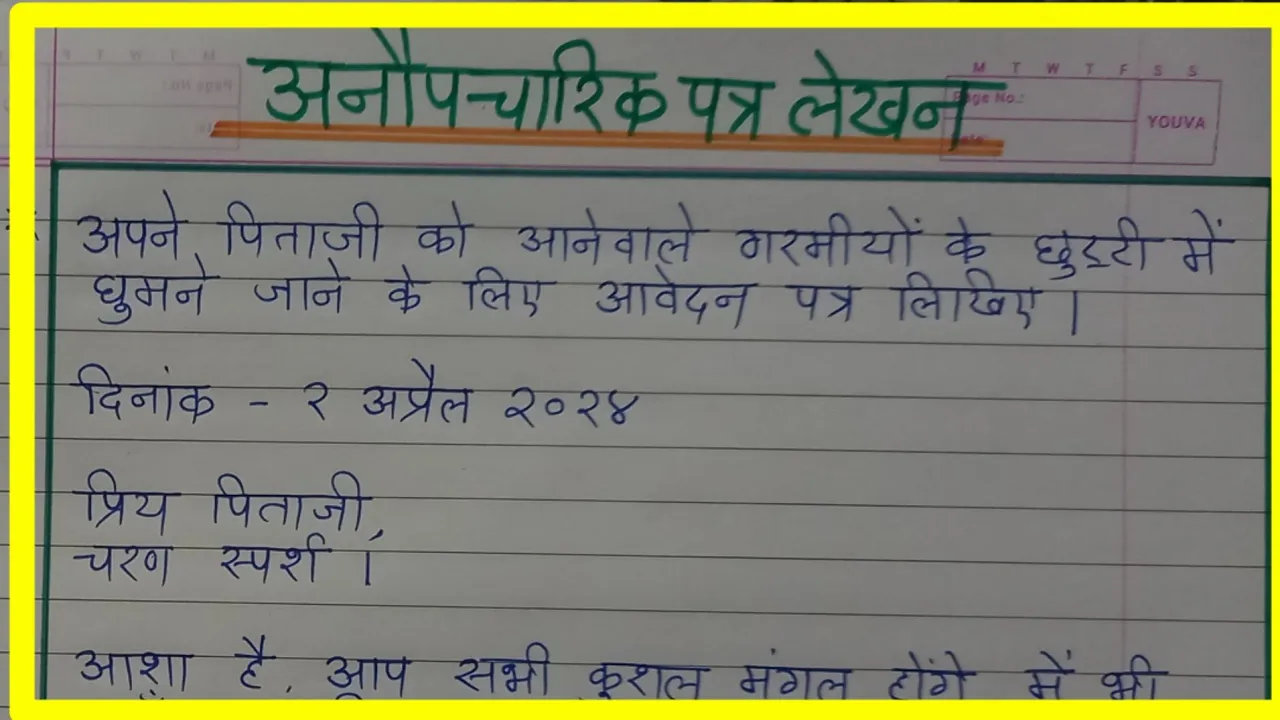 अनौपचारिक पत्र लेखन
M T W T F S S
Page No.:
YOUVA
अपने पिताजी को आनेवाले गरमीयों के छुट्टी में
घुमने जाने के लिए आवेदन पत्र लिखिए।
दिनांक - २ अप्रैल २०२४
प्रिय पिताजी,
चरण स्पर्श।
आशा है, आप सभी कुशल मंगल होंगे में भी